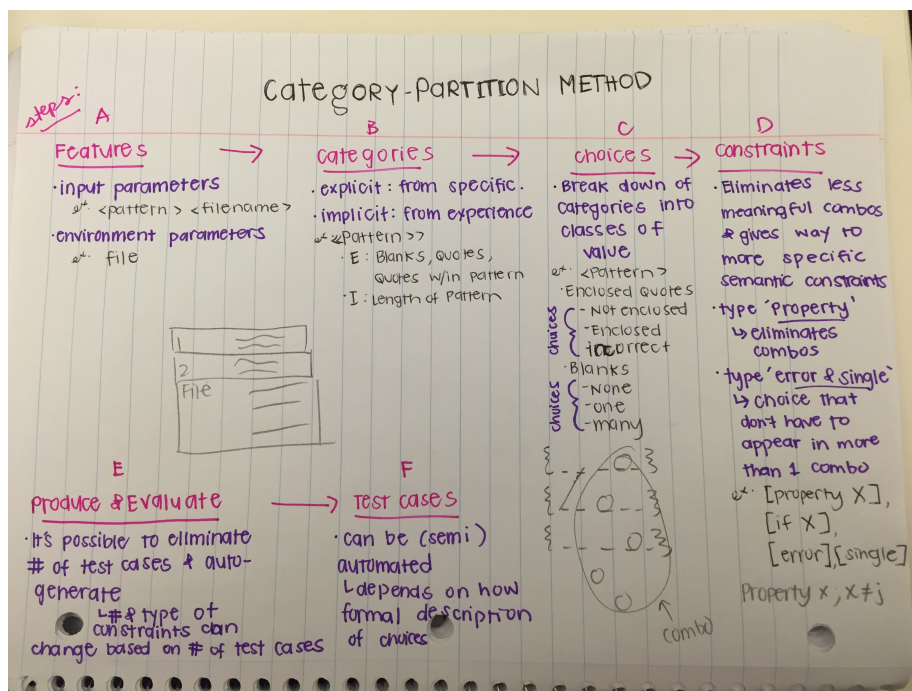 Category-Partition Method
steps:
A
Features
→
• input parameters
ex. <pattern> <filename>
• environment parameters
ex. file
B
categories
→
• explicit: from specific.
• implicit: from experience
ex. <<Pattern>>
• E: Blanks, Quotes,
Quotes w/in pattern
• I: Length of Pattern
C
choices
→
• Break down of
categories into
classes of
value
ex. <Pattern>
• Enclosed Quotes
choices
- Not enclosed
- Enclosed
incorrect
• Blanks
choices
- None
- one
- many
combo
D
constraints
• Eliminates less
meaningful combos
& gives way to
more specific
semantic constraints
• type 'Property'
↳ eliminates
combos
• type 'error & single'
↳ choice that
don't have to
appear in more
than 1 combo
ex. [property X],
[if X],
[error],[single]
Property x; x≠j
1
2
File
E
Produce & Evaluate
→
• It's possible to eliminate
# of test cases & auto-
generate
↳ # & type of
constraints can
change based on # of test cases
F
Test cases
• can be (semi)
automated
↳ depends on how
formal description
of choices